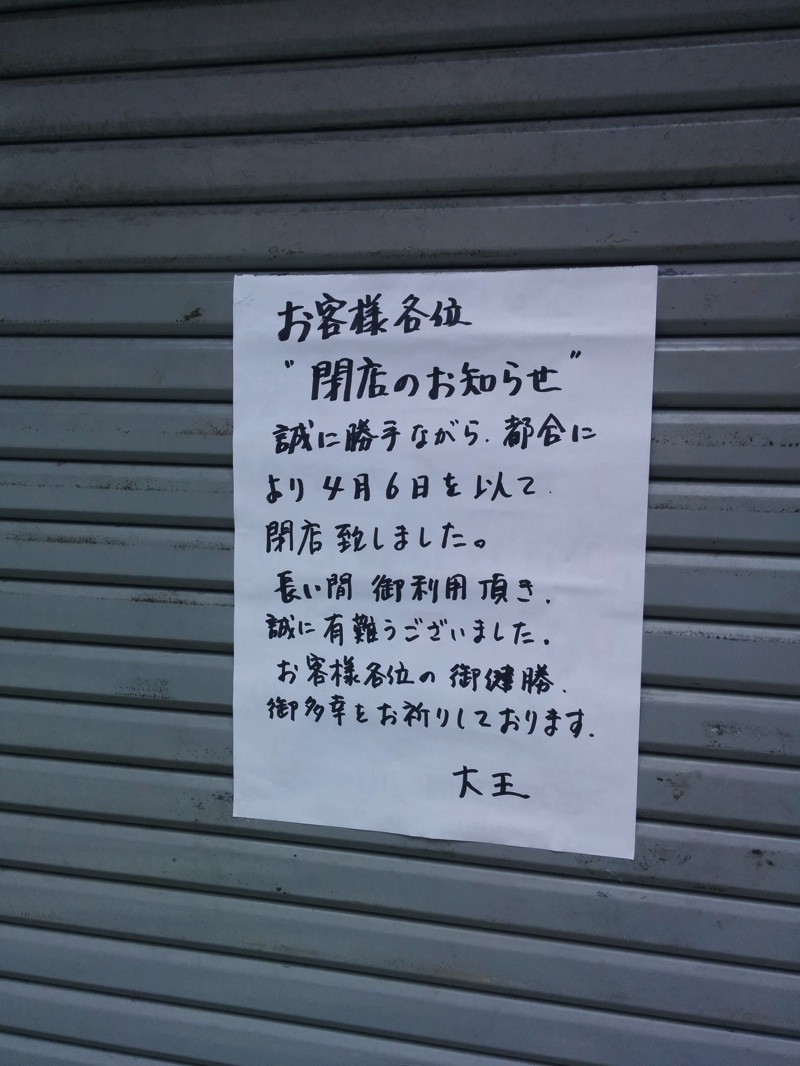 お客様各位
"閉店のお知らせ"
誠に勝手ながら、都合に
より4月6日を以て、
閉店致しました。
長い間 御利用頂き、
誠に有難うございました。
お客様各位の御健勝、
御多幸をお祈りしております。
大王